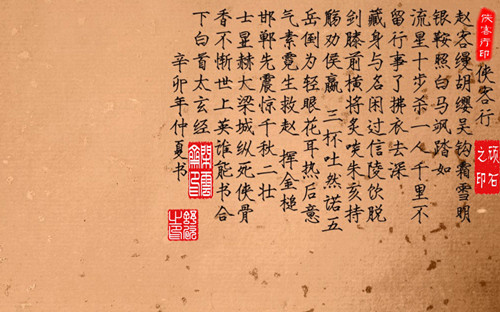 侠客行印
侠客行
顽石之印
赵客缦胡缨吴钩霜雪明
银鞍照白马飒踏如
流星十步杀一人千里不
留行事了拂衣去深
藏身与名闲过信陵饮脱
剑膝前横将炙啖朱亥持
觞劝侯嬴 三杯吐然诺五
岳倒为轻眼花耳热后意
气素霓生救赵 挥金槌
邯郸先震惊千秋二壮
士显赫大梁城纵死侠骨
香不惭世上英谁能书合
下白首太玄经
辛卯年仲夏书